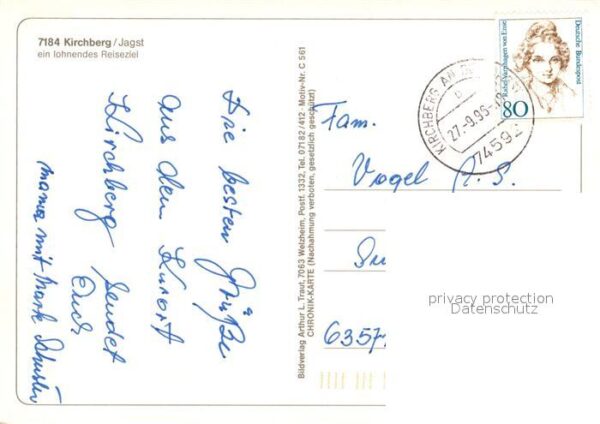 7184 Kirchberg/Jagst
ein lohnendes Reiseziel
Die besten Grüße
aus dem Kurort
Kirchberg sendet
Euch
mama mit
Bildverlag Arthur L. Traut, 7063 Welzheim, Postf. 1332, Tel. 07182/412 · Motiv-Nr. C 561
CHRONIK-KARTE (Nachahmung verboten, gesetzlich geschützt)
Deutsche Bundespost
Rahel Varnhagen von Ense
80
KIRCHBERG AN
27.-9.95
74592
Fam.
Vogel
6357
privacy protection
Datenschutz